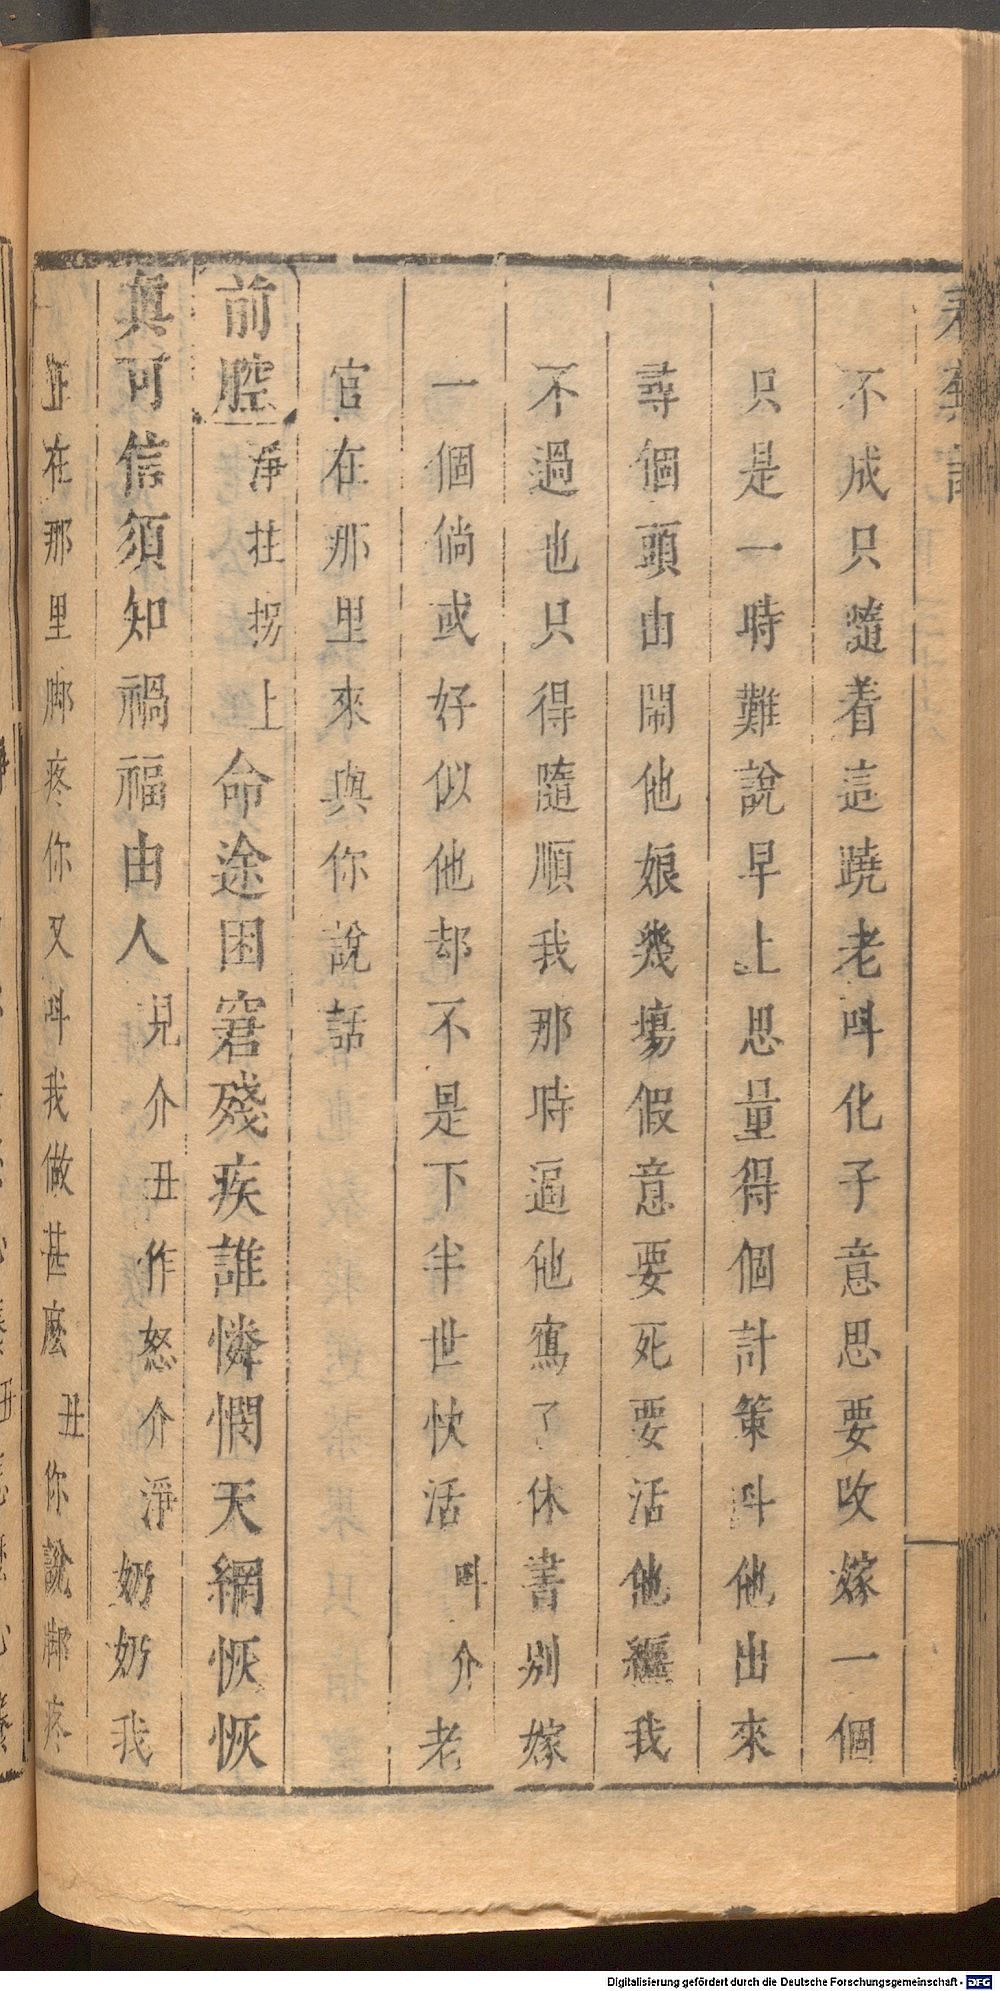 不成只隨着這蹺老呌化子意思要改嫁一個
只是一時難說早上思量得個計策呌他出來
尋個頭由鬧他娘幾塲假意要死要活他纏我
不過也只得隨順我那時逼他寫了休書別嫁
一個倘或好似他却不是下半世快活 呌介 老
官在那里來與你說話
前腔 淨拄拐上 命途困窘殘疾誰憐憫天網恢恢
真可信須知禍福由人 見介丑作怒介淨 奶奶我
正在那里脚疼你又呌我做甚麽 丑 你說脚疼
Digitalisierung gefördert durch die Deutsche Forschungsgemeinschaft - DFG